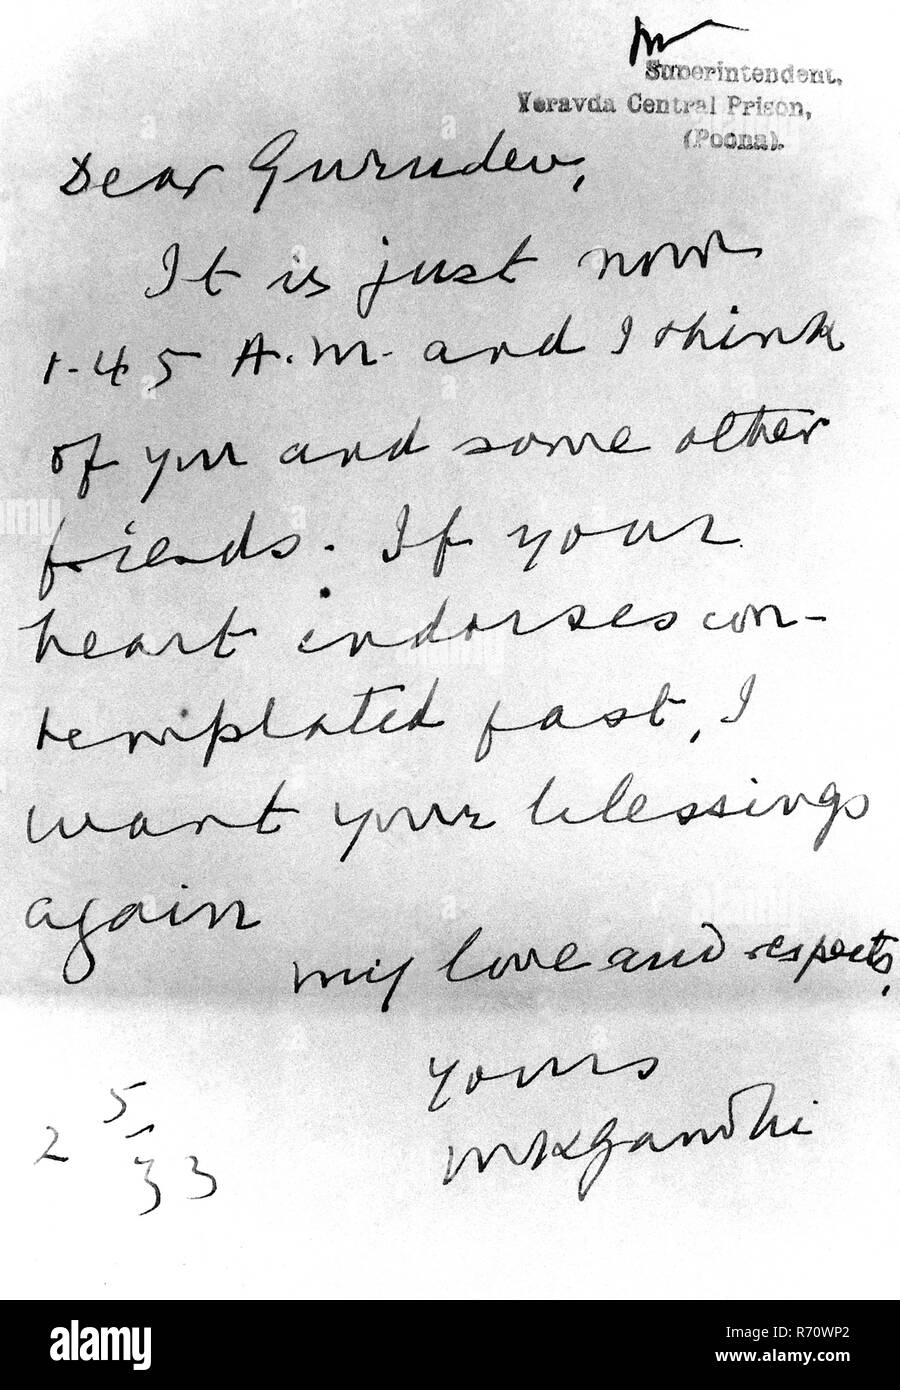 Superintendent,
Yeravda Central Prison,
(Poona).
Dear Gurudev,
It is just now
1-45 A.M. and I think
of you and some other
friends. If your
heart endorses con-
templated fast, I
want your blessings
again
My love and respects,
yours
MKGandhi
2 5/33
alamy
Image ID: R70WP2
www.alamy.com